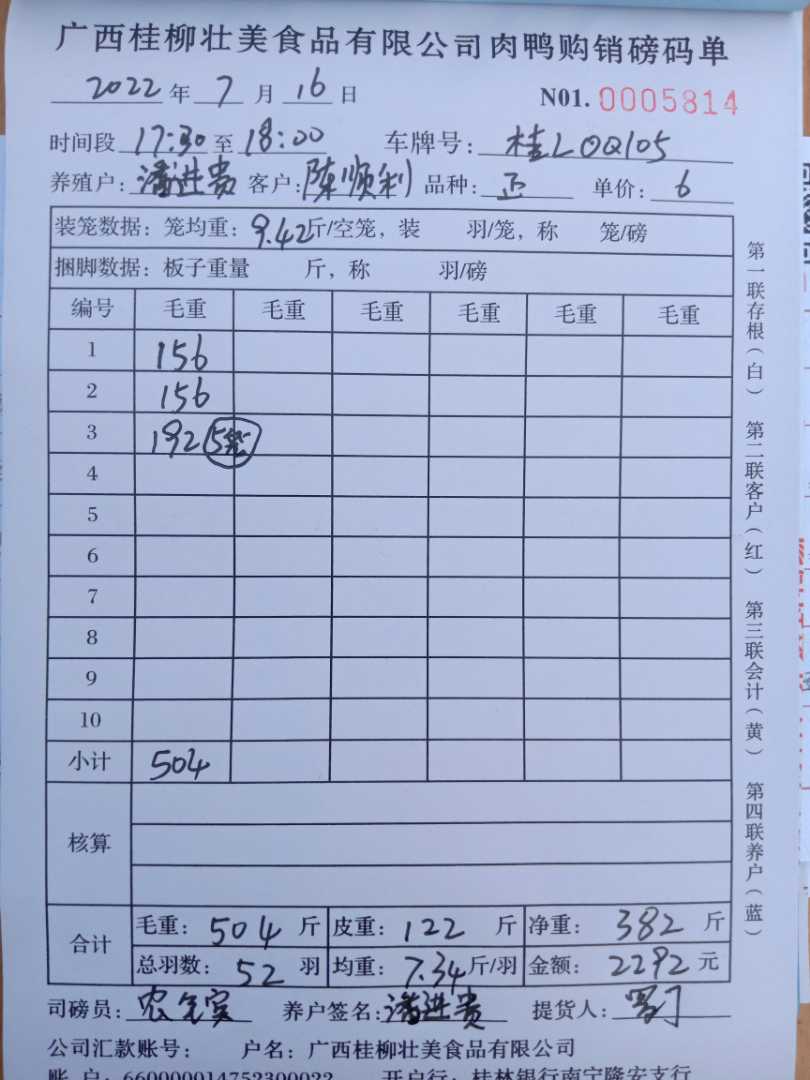 广西桂柳壮美食品有限公司肉鸭购销磅码单
2022 年 7 月 16 日 N01. 0005814
时间段 17:30 至 18:00 车牌号: 桂L0Q105
养殖户: 潘进贵 客户: 陈顺利 品种: 正 单价: 6
装笼数据: 笼均重: 9.42 斤/空笼, 装 羽/笼, 称 笼/磅
捆脚数据: 板子重量 斤, 称 羽/磅
编号 毛重 毛重 毛重 毛重 毛重 毛重
1 156
2 156
3 192 5笼
4
5
6
7
8
9
10
小计 504
核算
合计 毛重: 504 斤 皮重: 122 斤 净重: 382 斤
总羽数: 52 羽 均重: 7.34 斤/羽 金额: 2292 元
司磅员: 养户签名: 潘进贵 提货人:
公司汇款账号: 户名: 广西桂柳壮美食品有限公司
账 户: 660000014752300022 开户行: 桂林银行南宁隆安支行
第一联存根(白) 第二联客户(红) 第三联会计(黄) 第四联养户(蓝)